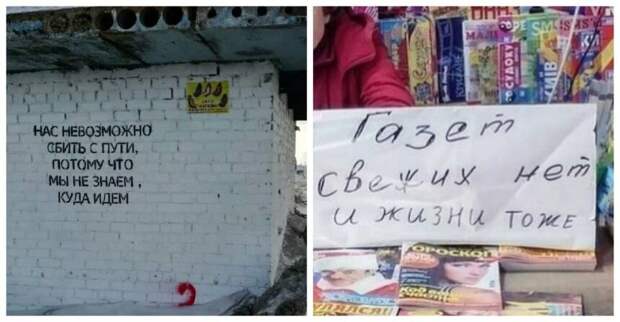 НАС НЕВОЗМОЖНО
СБИТЬ С ПУТИ,
ПОТОМУ ЧТО
МЫ НЕ ЗНАЕМ,
КУДА ИДЕМ
СУДОКУ
Газет
свежих нет
и жизни тоже
ГОРОСКОП